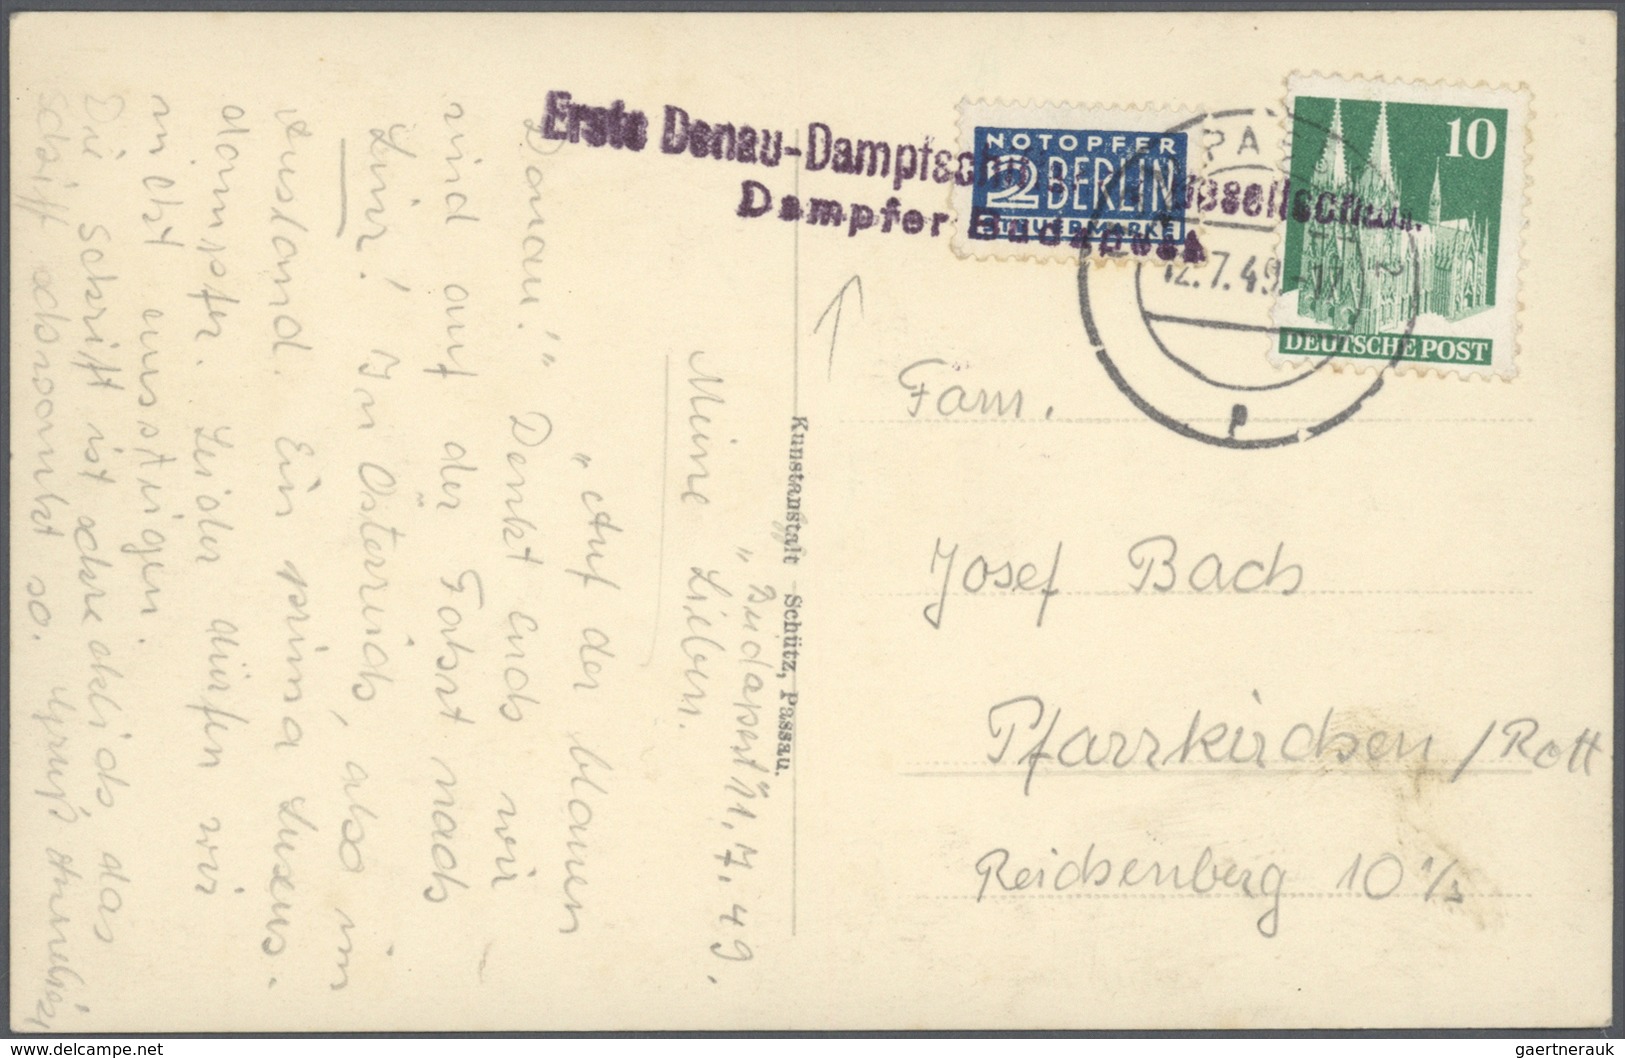 Erste Donau-Dampfschif Gesellschaft.
Dampfer Budapest
NOTOPFER
2 BERLIN
STEUERMARKE
10
DEUTSCHE POST
PA
12.7.49.-17
2
p
Fam.
Josef Bach
Pfarrkirchen / Rott
Reichenberg 10 1/2
Kunstanstalt Schütz, Passau.
„Budapest" 11.7.49.
Meine Lieben.
„Auf der blauen
Donau!" Denkt euch wir
sind auf der Fahrt nach
Linz! In Österreich, also im
Ausland. Ein prima Luxus-
dampfer. Leider dürfen wir
nicht aussteigen.
Die Schrift ist schrecklich, das
Schiff schwankt so. Gruß
www.delcampe.net
gaertnerauk